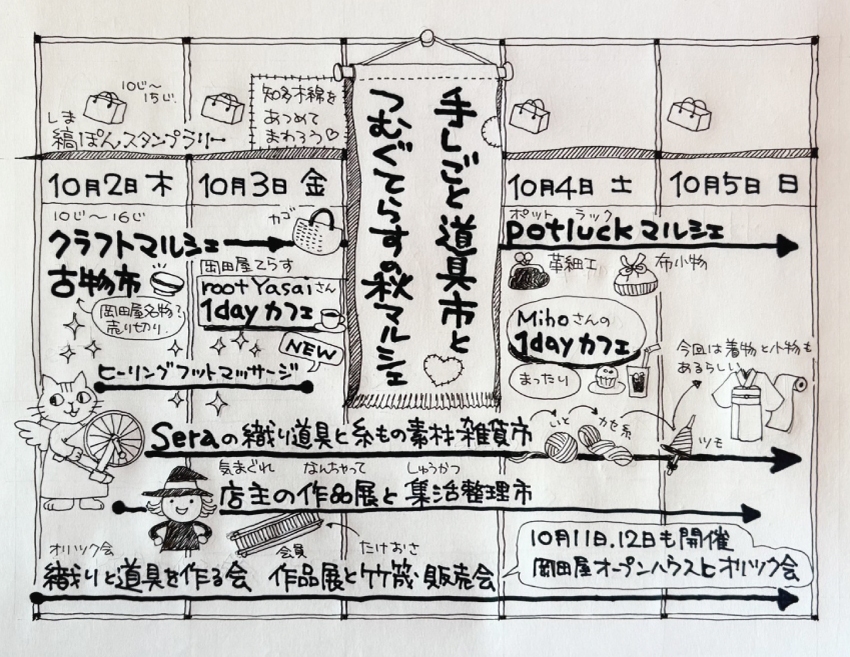 手しごと道具市と
つむぐてらすの秋マルシェ
10じ〜
15じ
しま
縞ぽんスタンプラリー
知多木綿を
あつめて
まわろう♡
10月2日 木
10月3日 金
10月4日 土
10月5日 日
10じ〜16じ
クラフトマルシェ
カゴ
古物市
岡田屋名物?
売り切り
岡田屋てらす
root Yasaiさん
1day カフェ
NEW
ヒーリングフットマッサージ
ポットラック
potluck マルシェ
革細工
布小物
Mihoさんの
1day カフェ
まったり
今回は着物と小物も
あるらしい
Seraの織り道具と糸もの素材・雑貨市
いと
カセ糸
ツモ
気まぐれ なんちゃって しゅうかつ
店主の作品展と集活整理市
オリツク会 会員 たけおさ
織りと道具を作る会 作品展と竹筬・販売会
10月11日、12日も開催
岡田屋オープンハウスとオリツク会